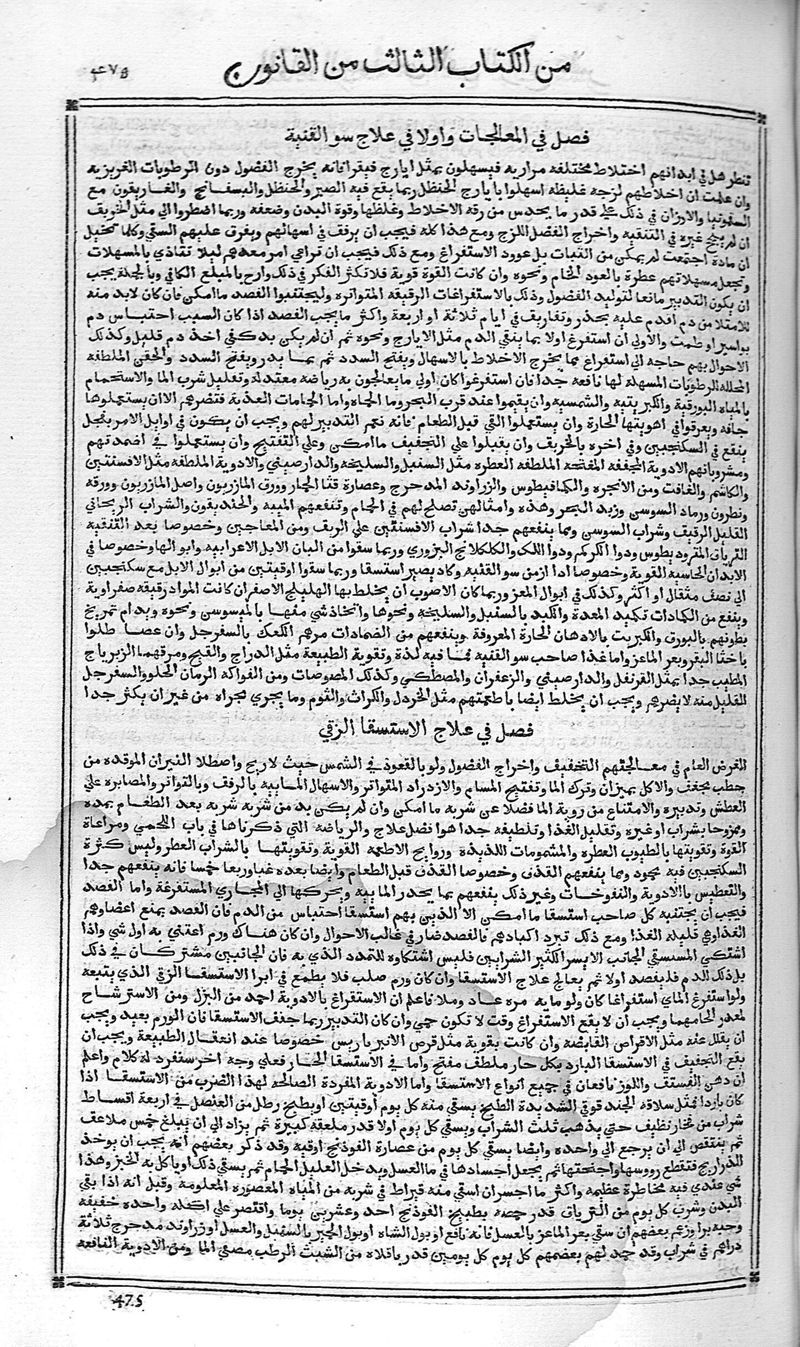 من الكتاب الثالث من القانون ٤٧٥
فصل في المعالجات واولا في علاج سو القنية
تنطر هل في ابدانهم اختلاط مختلفه مراريه فيسهلون بمثل ايارج فيقرا فانه يخرج الفضول دون الرطوبات الغريزيه
وان علمت ان اخلاطهم لزجه غليظه اسهلوا بايارج الحنظل ربما يقع فيه الصبر والحنظل والبسفانج والغاريقون مع
السقمونيا والاوزان في ذلك علي قدر ما يحدس من رقه الاخلاط وغلظها وقوة البدن وضعفه وربما اضطروا الي مثل الخربق
ان لم ينجع غيره في التنقيه واخراج الفضل اللزج ومع هذا كله فيجب ان يرفق في اسهالهم ويفرق عليهم السقي وكلما تخيل
ان مادة اجتمعت لم يمكن من الثبات بل عوود الاستفراغ ومع ذلك فيجب ان تراعي امر معدهم ليلا تتاذي بالمسهلات
وتجعل مسهلاتهم عطرة بالعود الخام ونحوه وان كانت القوة قوية فلا تكثر الفكر في ذلك وارح بالمبلغ الكافي وبالجملة يجب
ان يكون التدبير مانعا لتوليد الفضول وذلك بالاستفراغات الرقيقه المتواتره وليجتنبوا الفصد ما امكن فان كان لابد منه
للامتلا من دم اقدم عليه بحذر وتفاريق في ايام ثلاثة او اربعة واكثر ما يجب الفصد اذا كان السبب احتباس دم
بواسير او طمث والاولي ان استفرغ اولا بما ينقي الدم مثل الايارج ونحوه ثم ان لم يكن بد كفي اخذ دم قليل وكذلك
الاحوال بهم حاجه الي استفراغ مما يخرج الاخلاط بالاسهال ويفتح السدد ثم بما يدر ويفتح السدد والحقن الملطفه
المحلله الرطوبات المسهله لها نافعه جدا فان استفرغوا كان اولي ما يعالجون به رياضه معتدلة وتقليل شرب الما والاستحمام
بالمياه البورقية والكبريتيه والشمسيه وان يقيموا عند قرب البحر وما الحماه واما الحمامات العذبة فتضرهم الا ان يستعملوها
جافه ويعرقوا في اهويتها الحارة وان يستعملوا القي قبل الطعام فانه نعم التدبير لهم ويجب ان يكون في اوايل الامر بفجل
ينقع في السكنجبين وفي اخره بالخربق وان يقبلوا علي التجفيف ما امكن وعلي التفتيح وان يستعملوا في اضمدتهم
ومشروباتهم الادوية المجففه المفتحه الملطفه العطره مثل السنبل والسليخه والدارصيني والادوية الملطفه مثل الافسنتين
والكاشم والغافت وبزر الانجره والكمافيطوس والزراوند المدحرج وعصارة قثا الحمار وورق المازريون واصل المازريون وورقه
ونطرون ورماد السوسن وزبد البحر وهذه وامثالهن تصلح لهم في الحمام وتنفعهم الميبه والخنديقون والشراب الريحاني
القليل الرقيق وشراب السوسن ومما ينفعهم جدا شراب الافسنتين علي الريق ومن المعاجين وخصوصا بعد التنقيه
الترياق والمثروديطوس ودوا الكركم ودوا اللك والكلكلانج البزوري وربما سقوا من البان الابل الاعرابيه وابوالها وخصوصا في
الابدان الجاسيه القوية وخصوصا اذا ازمن سو القنيه وكاد يصير استسقا وربما سقوا اوقيتين من ابوال الابل مع سكنجبين
الي نصف مثقال او اكثر وكذلك في ابوال المعز وربما كان الاصوب ان يخلط بها الهليلج الاصفر ان كانت المواد رقيقه صفراوية
وينفع من الكمادات تكميد المعدة والكبد بالسنبل والسليخه ونحوها واتخاذ شي منها بالميسوسن ونحوه ويدام تمريخ
بطونهم بالبورق والكبريت بالادهان الحارة المعروفة وينفعهم من الضمادات مرهم الكعك بالسفرجل وان عصا طلوا
باخثا البقر وبعر الماعز واما غذا صاحب سو القنيه فما فيه لذة وتقوية الطبيعة مثل الدراج والقبج ومرقهما الزيرباج
المطيب جدا بمثل القرنفل والدارصيني والزعفران والمصطكي وكذلك المصوصات ومن الفواكه الرمان الحلو والسفرجل
القليل منه لا يضرهم ويجب ان يخلط ايضا باطعمتهم مثل الخردل والكراث والثوم وما يجري مجراه من غير ان يكثر جدا
فصل في علاج الاستسقا الزقي
الغرض العام في معالجتهم التجفيف واخراج الفضول ولو بالقعود في الشمس حيث لا ريح واصطلا النيران الموقده من
حطب يجفف والاكل بميزان وترك الما وتفتيح المسام والازدراد المتواتر والاسهال للمايية بالرفق وبالتواتر والمصابره علي
العطش وتدبيره والامتناع من روية الما فضلا عن شربه ما امكن وان لم يكن بد من شربه شربه بعد الطعام بمده
وممزوجا بشراب او غيره وتقليل الغذا وتلطيفه جدا هو افضل علاج والرياضه التي ذكرناها في باب اللحمي ومراعاة
القوة وتقويتها بالطيوب العطره والمشمومات اللذيذة وروايح الاطعمه القوية وتقويتها بالشراب العطر وليس كثرة
السكنجبين فيه بمحمود ومما ينفعهم القذف وخصوصا القذف قبل الطعام وايضا بعده غبا وربعا وخمسا فانه ينفعهم جدا
والتعطيس بالادوية والنفوخات وغير ذلك ينفعهم بما يحدر المايية ويحركها الي المجاري المستفرغة واما الفصد
فيجب ان يجتنبه كل صاحب استسقا ما امكن الا الذين بهم استسقا احتباس من الدم فان الفصد يمنع اعضاوهم
الغذاوهي قليله الغذا ومع ذلك تبرد اكبادهم فالفصد ضار في غالب الاحوال وان كان هناك ورم اعتني به اول شي واذا
اشتكي المستسقي الجانب الايسر الكثير الشرايين فليس اشتكاوه للتمدد الذي به فان الجانبين مشتركان في ذلك
بل ذلك للدم فليفصد اولا ثم يعالج علاج الاستسقا وان كان ورم صلب فلا يطمع في ابرا الاستسقا الزقي الذي يتبعه
ولو استفرغ الماي استفراغا كان ولو مايه مره عاد وملا فاعلم ان الاستفراغ بالادوية احمد من البزل ومن الاسترشاح
لمعدر الحامها ويجب ان لا يقع الاستفراغ وقت لا تكون حمي وان كان التدبير ربما جفف الاستسقا فان الورم يعيد ويجب
ان يقلل عنه مثل الاقراص القابضه وان كانت بقوية مثل قرص الانبرباريس خصوصا عند انعقال الطبيعة ويجب ان
يقع التجفيف في الاستسقا البارد بكل حار ملطف مفتح واما في الاستسقا الحار فعلي وجه اخر سنفرد له كلام واعلم
ان دهن الفستق واللوز نافعان في جميع انواع الاستسقا واما الادوية المفردة الصالحه لهذا الضرب من الاستسقا اذا
كان باردا فمثل سلاقة الحندقوقي الشديدة الطبخ يسقي منه كل يوم اوقيتين او يطبخ رطل من العنصل في اربعة اقساط
شراب من فخار نظيف حتي يذهب ثلث الشراب ويسقي كل يوم اولا قدر ملعقه كبيرة ثم يزاد الي ان يبلغ خمس ملاعق
ثم ينتقص الي ان يرجع الي واحده وايضا يسقي كل يوم من عصارة الفوذنج اوقيه وقد ذكر بعضهم انه يجب ان يوخذ
الذراريح فتقطع رووسها واجنحتها ثم يجعل اجسادها في ما العسل ويدخل العليل الحمام ثم يسقي ذلك او ياكل به الخبز وهذا
شي عندي فيه مخاطرة عظيمه واكثر ما اجسر ان اسقي منه قيراط في شربه من المياه المعصوره المعلومة وقيل انه اذا نقي
البدن وشرب كل يوم من الترياق قدر حمصه بطبيخ الفوذنج احد وعشرين يوما واقتصر علي اكله واحده خفيفه
وجبه برا وزعم بعضهم ان سقي بعر الماعز بالعسل فانه نافع او بول الشاه او بول الحمير بالسنبل والعسل او زراوند مدحرج ثلاثة
دراهم في شراب وقد حمد لهم بعضهم كل يوم كل يومين قدر باقلاه من الشبث الرطب مصفي الما ومن الادوية النافعه
475